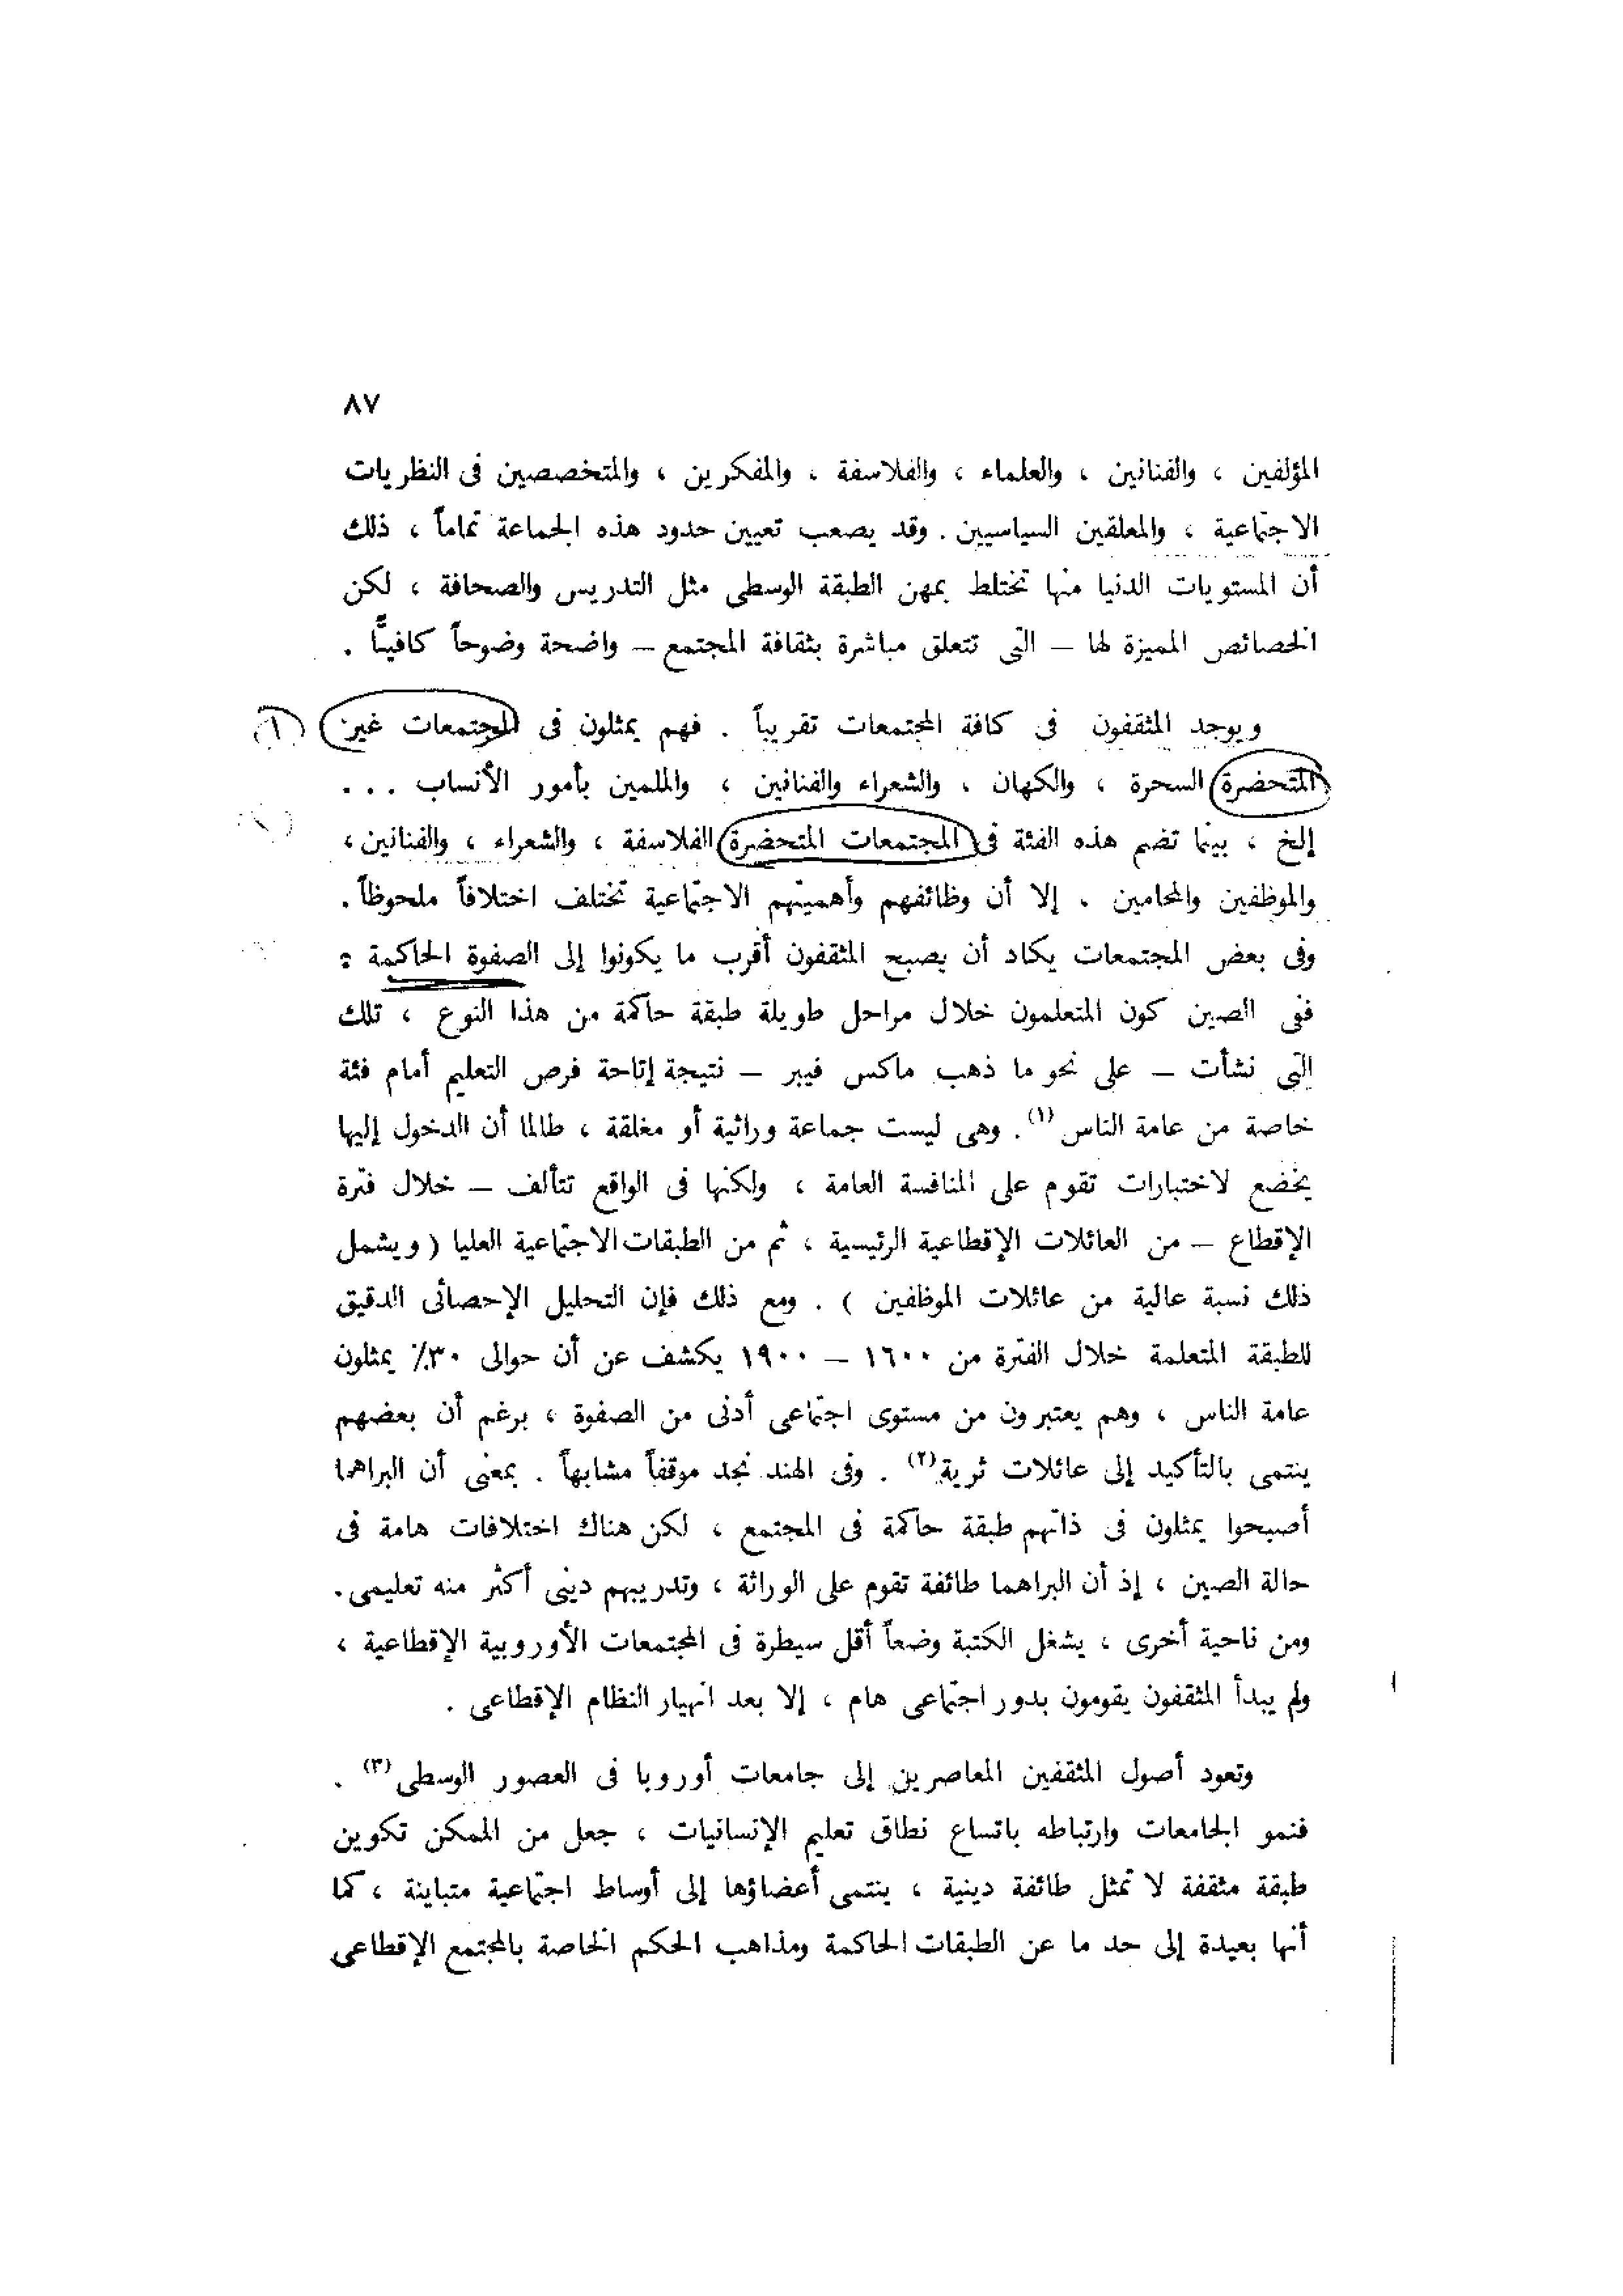 ٨٧
المؤلفين ، والفنانين ، والعلماء ، والفلاسفة ، والمفكرين ، والمتخصصين فى النظريات
الاجتماعية ، والمعلقين السياسيين . وقد يصعب تعيين حدود هذه الجماعة تماماً ، ذلك
أن المستويات الدنيا منها تختلط بمهن الطبقة الوسطى مثل التدريس والصحافة ، لكن
الخصائص المميزة لها – التى تتعلق مباشرة بثقافة المجتمع – واضحة وضوحاً كافيًّا .
ويوجد المثقفون فى كافة المجتمعات تقريباً . فهم يمثلون فى المجتمعات غير (١)
المتحضرة السحرة ، والكهان ، والشعراء والفنانين ، والملمين بأمور الأنساب ...
إلخ ، بينما تضم هذه الفئة فى المجتمعات المتحضرة الفلاسفة ، والشعراء ، والفنانين ،
والموظفين والمحامين . إلا أن وظائفهم وأهميتهم الاجتماعية تختلف اختلافاً ملحوظاً .
وفى بعض المجتمعات يكاد أن يصبح المثقفون أقرب ما يكونوا إلى الصفوة الحاكمة :
ففى الصين كون المتعلمون خلال مراحل طويلة طبقة حاكمة من هذا النوع ، تلك
التى نشأت – على نحو ما ذهب ماكس فيبر – نتيجة إتاحة فرص التعليم أمام فئة
خاصة من عامة الناس (١) . وهى ليست جماعة وراثية أو مغلقة ، طالما أن الدخول إليها
يخضع لاختبارات تقوم على المنافسة العامة ، ولكنها فى الواقع تتألف – خلال فترة
الإقطاع – من العائلات الإقطاعية الرئيسية ، ثم من الطبقات الاجتماعية العليا ( ويشمل
ذلك نسبة عالية من عائلات الموظفين ) . ومع ذلك فإن التحليل الإحصائى الدقيق
للطبقة المتعلمة خلال الفترة من ١٦٠٠ – ١٩٠٠ يكشف عن أن حوالى ٣٠٪ يمثلون
عامة الناس ، وهم يعتبرون من مستوى اجتماعى أدنى من الصفوة ، برغم أن بعضهم
ينتمى بالتأكيد إلى عائلات ثرية (٢) . وفى الهند نجد موقفاً مشابهاً . بمعنى أن البراهما
أصبحوا يمثلون فى ذاتهم طبقة حاكمة فى المجتمع ، لكن هناك اختلافات هامة فى
حالة الصين ، إذ أن البراهما طائفة تقوم على الوراثة ، وتدريبهم دينى أكثر منه تعليمى .
ومن ناحية أخرى ، يشغل الكتبة وضعاً أقل سيطرة فى المجتمعات الأوروبية الإقطاعية ،
ولم يبدأ المثقفون يقومون بدور اجتماعى هام ، إلا بعد انهيار النظام الإقطاعى .
وتعود أصول المثقفين المعاصرين إلى جامعات أوروبا فى العصور الوسطى (٣) .
فنمو الجامعات وارتباطه باتساع نطاق تعليم الإنسانيات ، جعل من الممكن تكوين
طبقة مثقفة لا تمثل طائفة دينية ، ينتمى أعضاؤها إلى أوساط اجتماعية متباينة ، كما
أنها بعيدة إلى حد ما عن الطبقات الحاكمة ومذاهب الحكم الخاصة بالمجتمع الإقطاعى